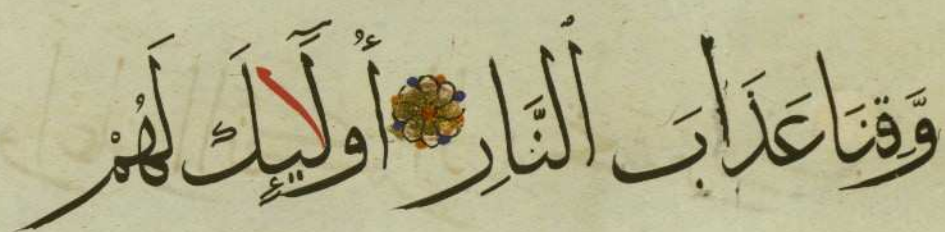 وَّقِنَا عَذَابَ ٱلنَّارِ أُولَٰٓئِكَ لَهُمْ